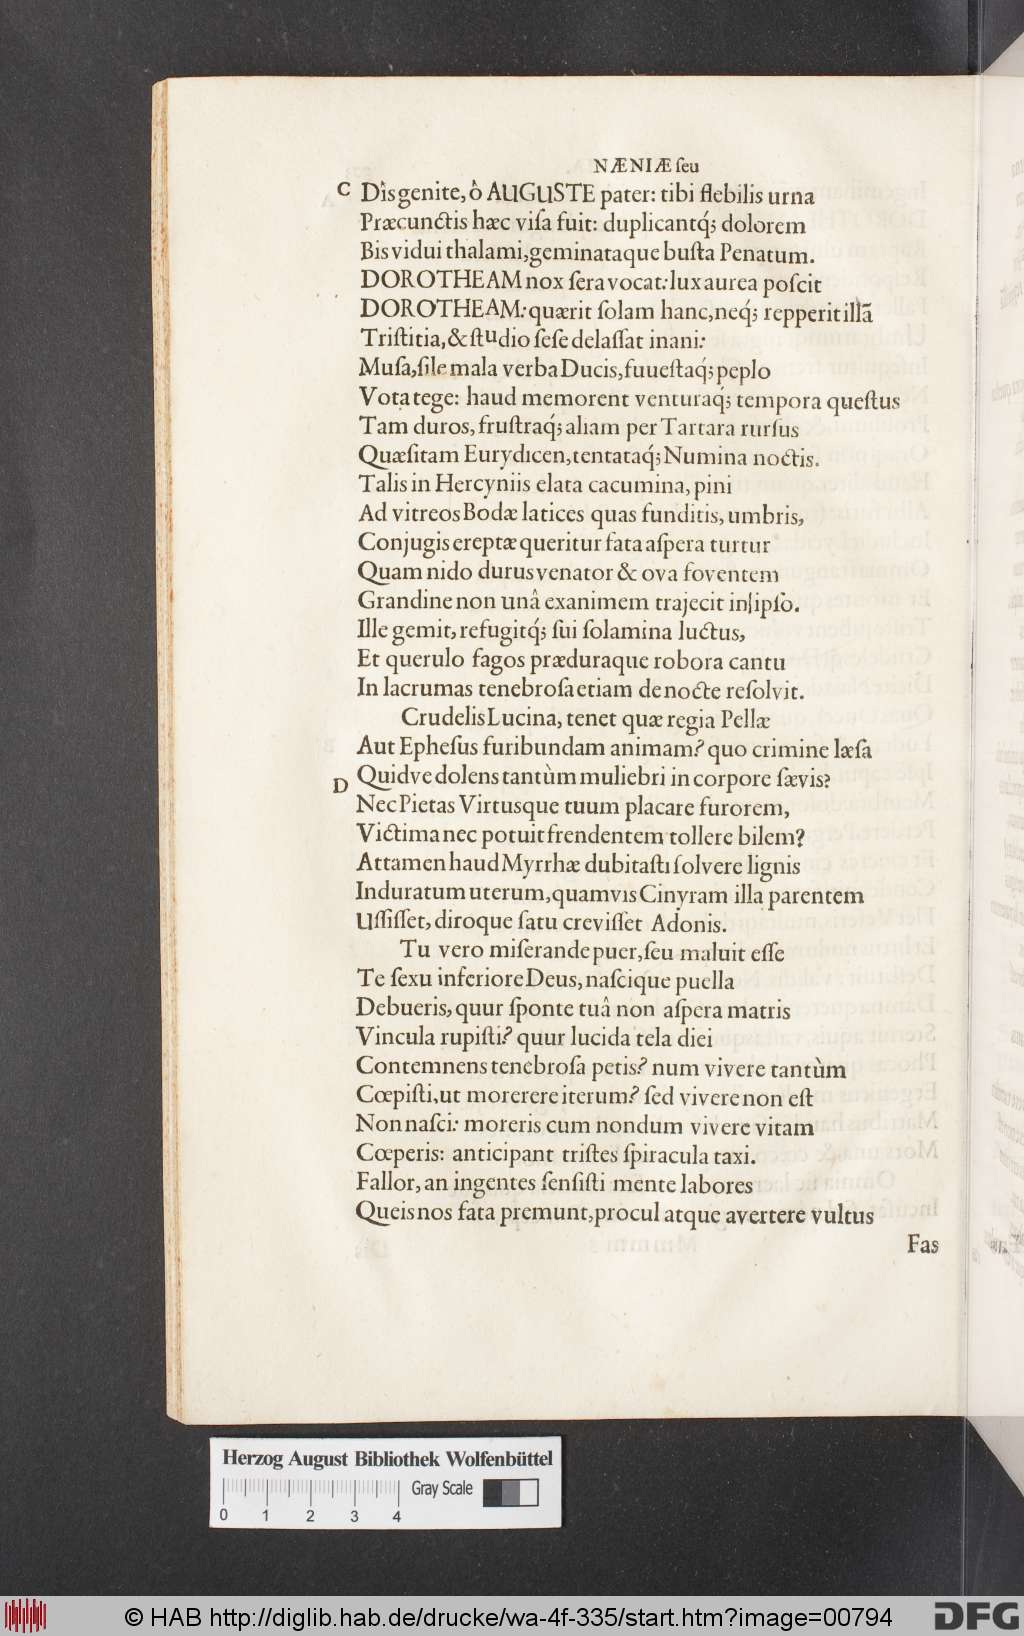 NÆNIÆ ſeu
C Dîs genite, ô AUGUSTE pater: tibi flebilis urna
Præcunctis hæc viſa fuit: duplicantq́; dolorem
Bis vidui thalami, geminataque buſta Penatum.
DOROTHEAM nox ſera vocat: lux aurea poſcit
DOROTHEAM: quærit ſolam hanc, neq́; repperit illã
Triſtitia, & ſtudio ſeſe delaſſat inani:
Muſa, ſile mala verba Ducis, fuueſtaq́; peplo
Vota tege: haud memorent venturaq́; tempora queſtus
Tam duros, fruſtraq́; aliam per Tartara rurſus
Quæſitam Eurydicen, tentataq́; Numina noctis.
Talis in Hercyniis elata cacumina, pini
Ad vitreos Bodæ latices quas funditis, umbris,
Conjugis ereptæ queritur fata aſpera turtur
Quam nido durus venator & ova foventem
Grandine non unâ exanimem trajecit in ipſo.
Ille gemit, refugitq́; ſui ſolamina luctus,
Et querulo fagos præduraque robora cantu
In lacrumas tenebroſa etiam de nocte reſolvit.
Crudelis Lucina, tenet quæ regia Pellæ
Aut Epheſus furibundam animam? quo crimine læſa
D Quidve dolens tantùm muliebri in corpore ſævis?
Nec Pietas Virtusque tuum placare furorem,
Victima nec potuit frendentem tollere bilem?
Attamen haud Myrrhæ dubitaſti ſolvere lignis
Induratum uterum, quamvis Cinyram illa parentem
Uſſiſſet, diroque ſatu creviſſet Adonis.
Tu vero miſerande puer, ſeu maluit eſſe
Te ſexu inferiore Deus, naſcique puella
Debueris, quur ſponte tuâ non aſpera matris
Vincula rupiſti? quur lucida tela diei
Contemnens tenebroſa petis? num vivere tantùm
Cœpiſti, ut morerere iterum? ſed vivere non eſt
Non naſci: moreris cum nondum vivere vitam
Cœperis: anticipant triſtes ſpiracula taxi.
Fallor, an ingentes ſenſiſti mente labores
Queis nos fata premunt, procul atque avertere vultus
Fas
Herzog August Bibliothek Wolfenbüttel
Gray Scale
0 1 2 3 4
© HAB http://diglib.hab.de/drucke/wa-4f-335/start.htm?image=00794
DFG